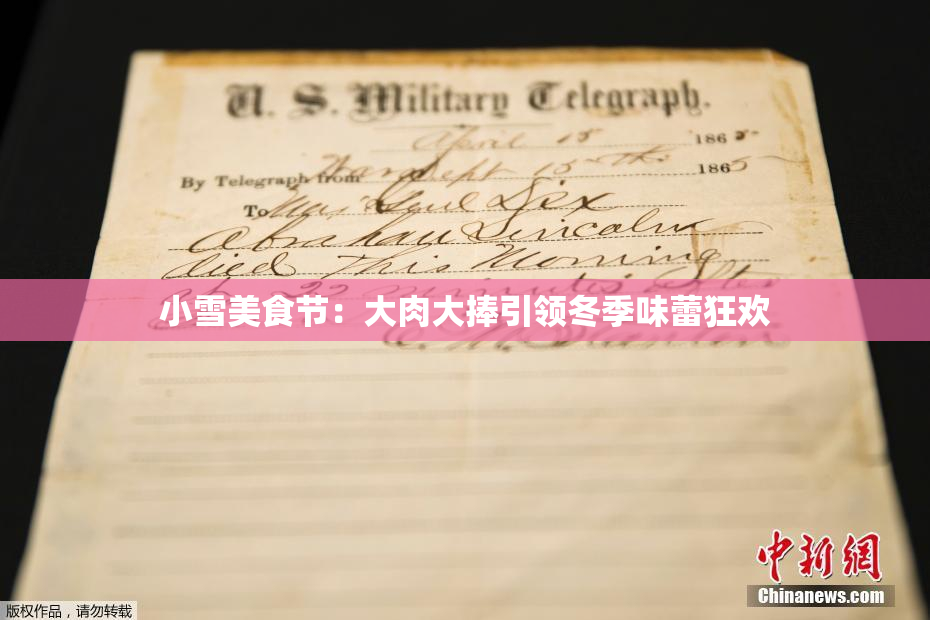 U. S. Military Telegraph.
April 15 1865
By Telegraph from War Dept 15th 1865
To Maj Genl Dix
Abraham Lincoln
died This Morning
at 22 minutes after
小雪美食节：大肉大捧引领冬季味蕾狂欢
E. M. Stanton
中新网
Chinanews.com
版权作品，请勿转载